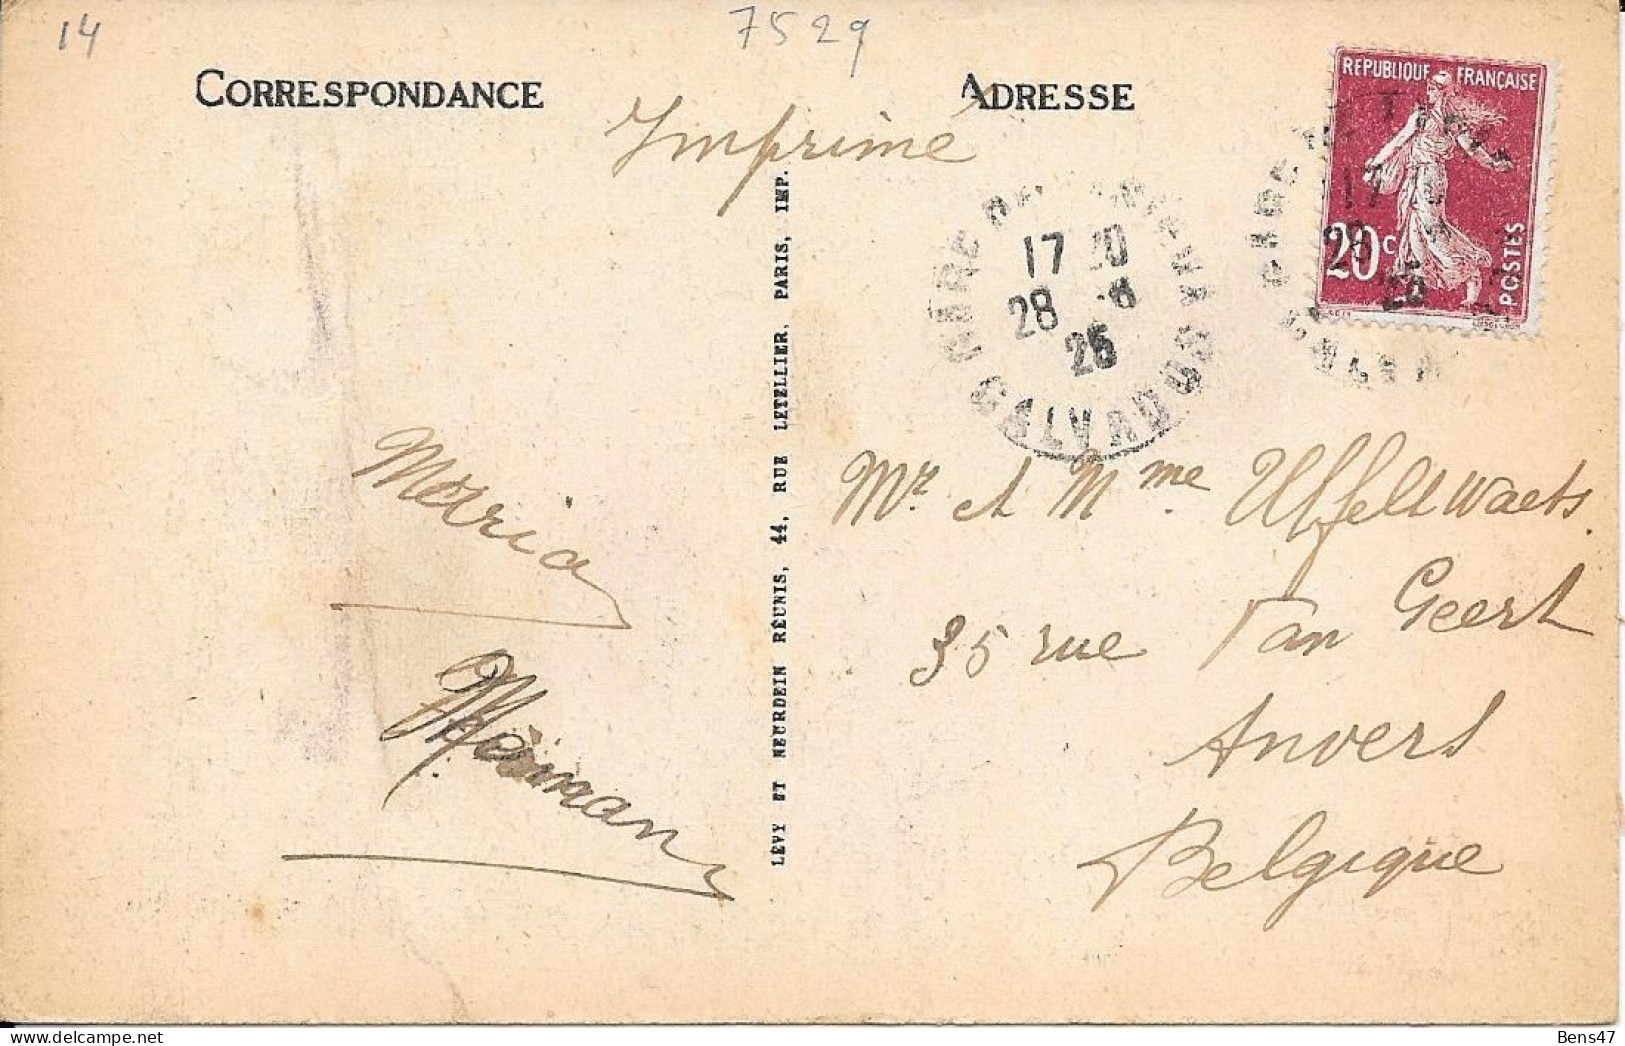 14
7529
CORRESPONDANCE
ADRESSE
Imprimé
REPUBLIQUE FRANÇAISE
20c
POSTES
17 
28 
25
GARE
CALVADOS
Mr. et Mme Uffeltwaets.
35 rue Van Geert
Anvers
Belgique
Maria
LÉVY ET NEURDEIN RÉUNIS, 44, RUE LETELLIER, PARIS, IMP.
Bens47